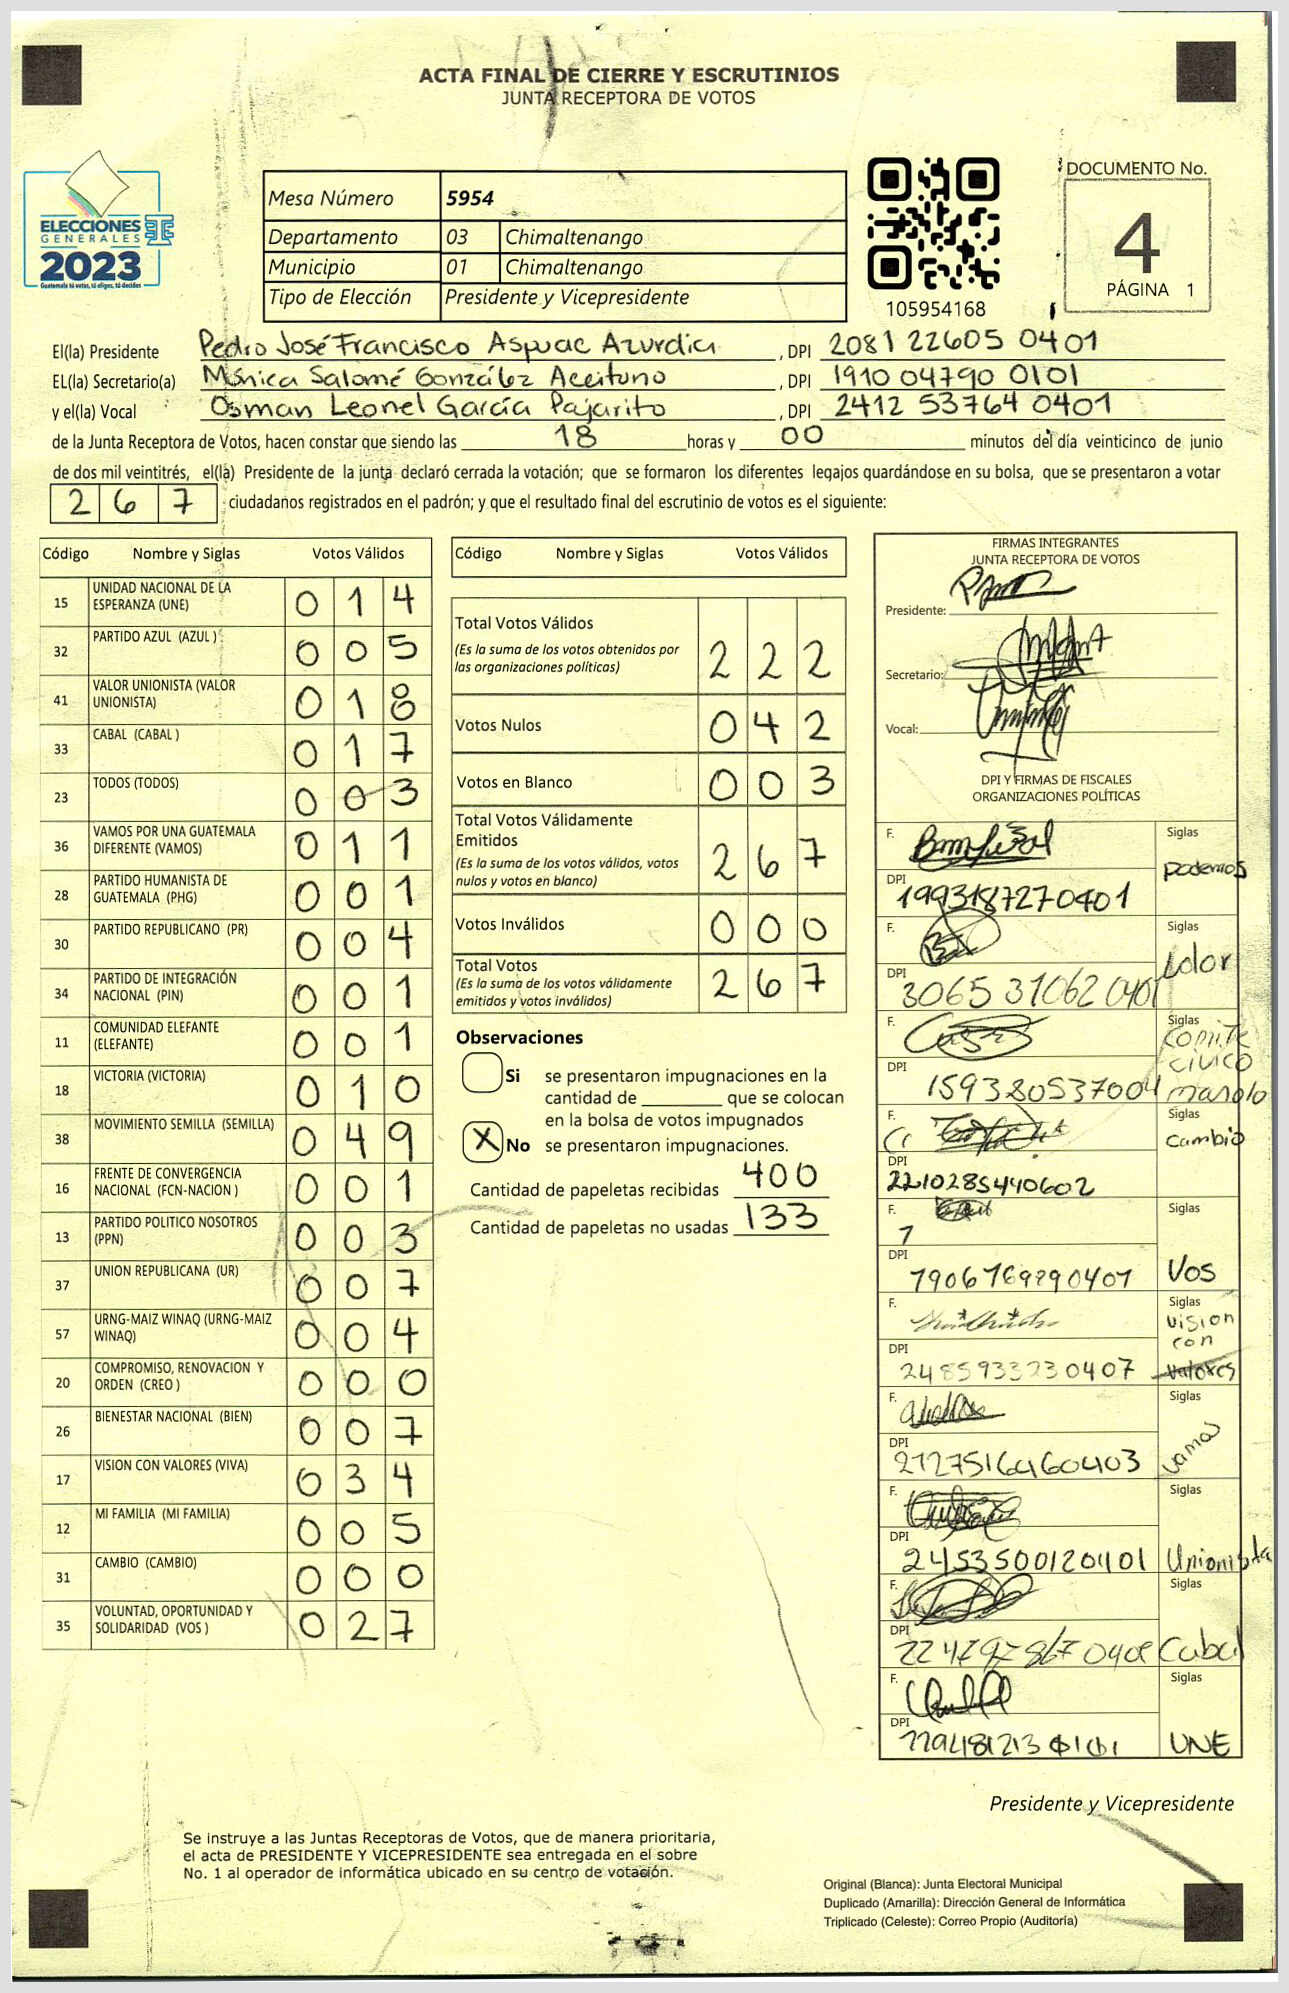 ACTA FINAL DE CIERRE Y ESCRUTINIOS
JUNTA RECEPTORA DE VOTOS
ELECCIONES
GENERALES
2023
Guatemala tú votas, tú eliges, tú decides
Mesa Número 5954
Departamento 03 Chimaltenango
Municipio 01 Chimaltenango
Tipo de Elección Presidente y Vicepresidente
105954168
DOCUMENTO No.
4
PÁGINA 1
El(la) Presidente Pedro José Francisco Aspuac Azurdia, DPI 2081 22605 0401
EL(la) Secretario(a) Mónica Salomé González Aceituno, DPI 1910 04790 0101
y el(la) Vocal Osman Leonel García Pajarito, DPI 2412 53764 0401
de la Junta Receptora de Votos, hacen constar que siendo las 18 horas y 00 minutos del día veinticinco de junio
de dos mil veintitrés, el(la) Presidente de la junta declaró cerrada la votación; que se formaron los diferentes legajos guardándose en su bolsa, que se presentaron a votar
267 ciudadanos registrados en el padrón; y que el resultado final del escrutinio de votos es el siguiente:
Código Nombre y Siglas Votos Válidos
15 UNIDAD NACIONAL DE LA ESPERANZA (UNE) 014
32 PARTIDO AZUL (AZUL ) 005
41 VALOR UNIONISTA (VALOR UNIONISTA) 018
33 CABAL (CABAL ) 017
23 TODOS (TODOS) 003
36 VAMOS POR UNA GUATEMALA DIFERENTE (VAMOS) 011
28 PARTIDO HUMANISTA DE GUATEMALA (PHG) 001
30 PARTIDO REPUBLICANO (PR) 004
34 PARTIDO DE INTEGRACIÓN NACIONAL (PIN) 001
11 COMUNIDAD ELEFANTE (ELEFANTE) 001
18 VICTORIA (VICTORIA) 010
38 MOVIMIENTO SEMILLA (SEMILLA) 049
16 FRENTE DE CONVERGENCIA NACIONAL (FCN-NACION ) 001
13 PARTIDO POLITICO NOSOTROS (PPN) 003
37 UNION REPUBLICANA (UR) 007
57 URNG-MAIZ WINAQ (URNG-MAIZ WINAQ) 004
20 COMPROMISO, RENOVACION Y ORDEN (CREO ) 000
26 BIENESTAR NACIONAL (BIEN) 007
17 VISION CON VALORES (VIVA) 034
12 MI FAMILIA (MI FAMILIA) 005
31 CAMBIO (CAMBIO) 000
35 VOLUNTAD, OPORTUNIDAD Y SOLIDARIDAD (VOS ) 027
Código Nombre y Siglas Votos Válidos
Total Votos Válidos 222
(Es la suma de los votos obtenidos por
las organizaciones políticas)
Votos Nulos 042
Votos en Blanco 003
Total Votos Válidamente
Emitidos 267
(Es la suma de los votos válidos, votos
nulos y votos en blanco)
Votos Inválidos 000
Total Votos 267
(Es la suma de los votos válidamente
emitidos y votos inválidos)
Observaciones
Si se presentaron impugnaciones en la
cantidad de ________ que se colocan
en la bolsa de votos impugnados
X No se presentaron impugnaciones.
Cantidad de papeletas recibidas 400
Cantidad de papeletas no usadas 133
FIRMAS INTEGRANTES
JUNTA RECEPTORA DE VOTOS
Presidente:
Secretario:
Vocal:
DPI Y FIRMAS DE FISCALES
ORGANIZACIONES POLÍTICAS
F. Siglas podemos
DPI 1993187270401
F. Siglas Lolor
DPI 3065 31062 0401
F. Siglas Comite civico manolo
DPI 159380537004
F. Siglas Cambio
DPI 2210285440602
F. Siglas Vos
DPI
F. Siglas Vision con valores
DPI 2485933230407
F. Siglas vamos
DPI
F. Siglas Unionista
DPI 2453500120401
F. Siglas Cabal
DPI
F. Siglas UNE
DPI
Presidente y Vicepresidente
Se instruye a las Juntas Receptoras de Votos, que de manera prioritaria,
el acta de PRESIDENTE Y VICEPRESIDENTE sea entregada en el sobre
No. 1 al operador de informática ubicado en su centro de votación.
Original (Blanca): Junta Electoral Municipal
Duplicado (Amarilla): Dirección General de Informática
Triplicado (Celeste): Correo Propio (Auditoría)